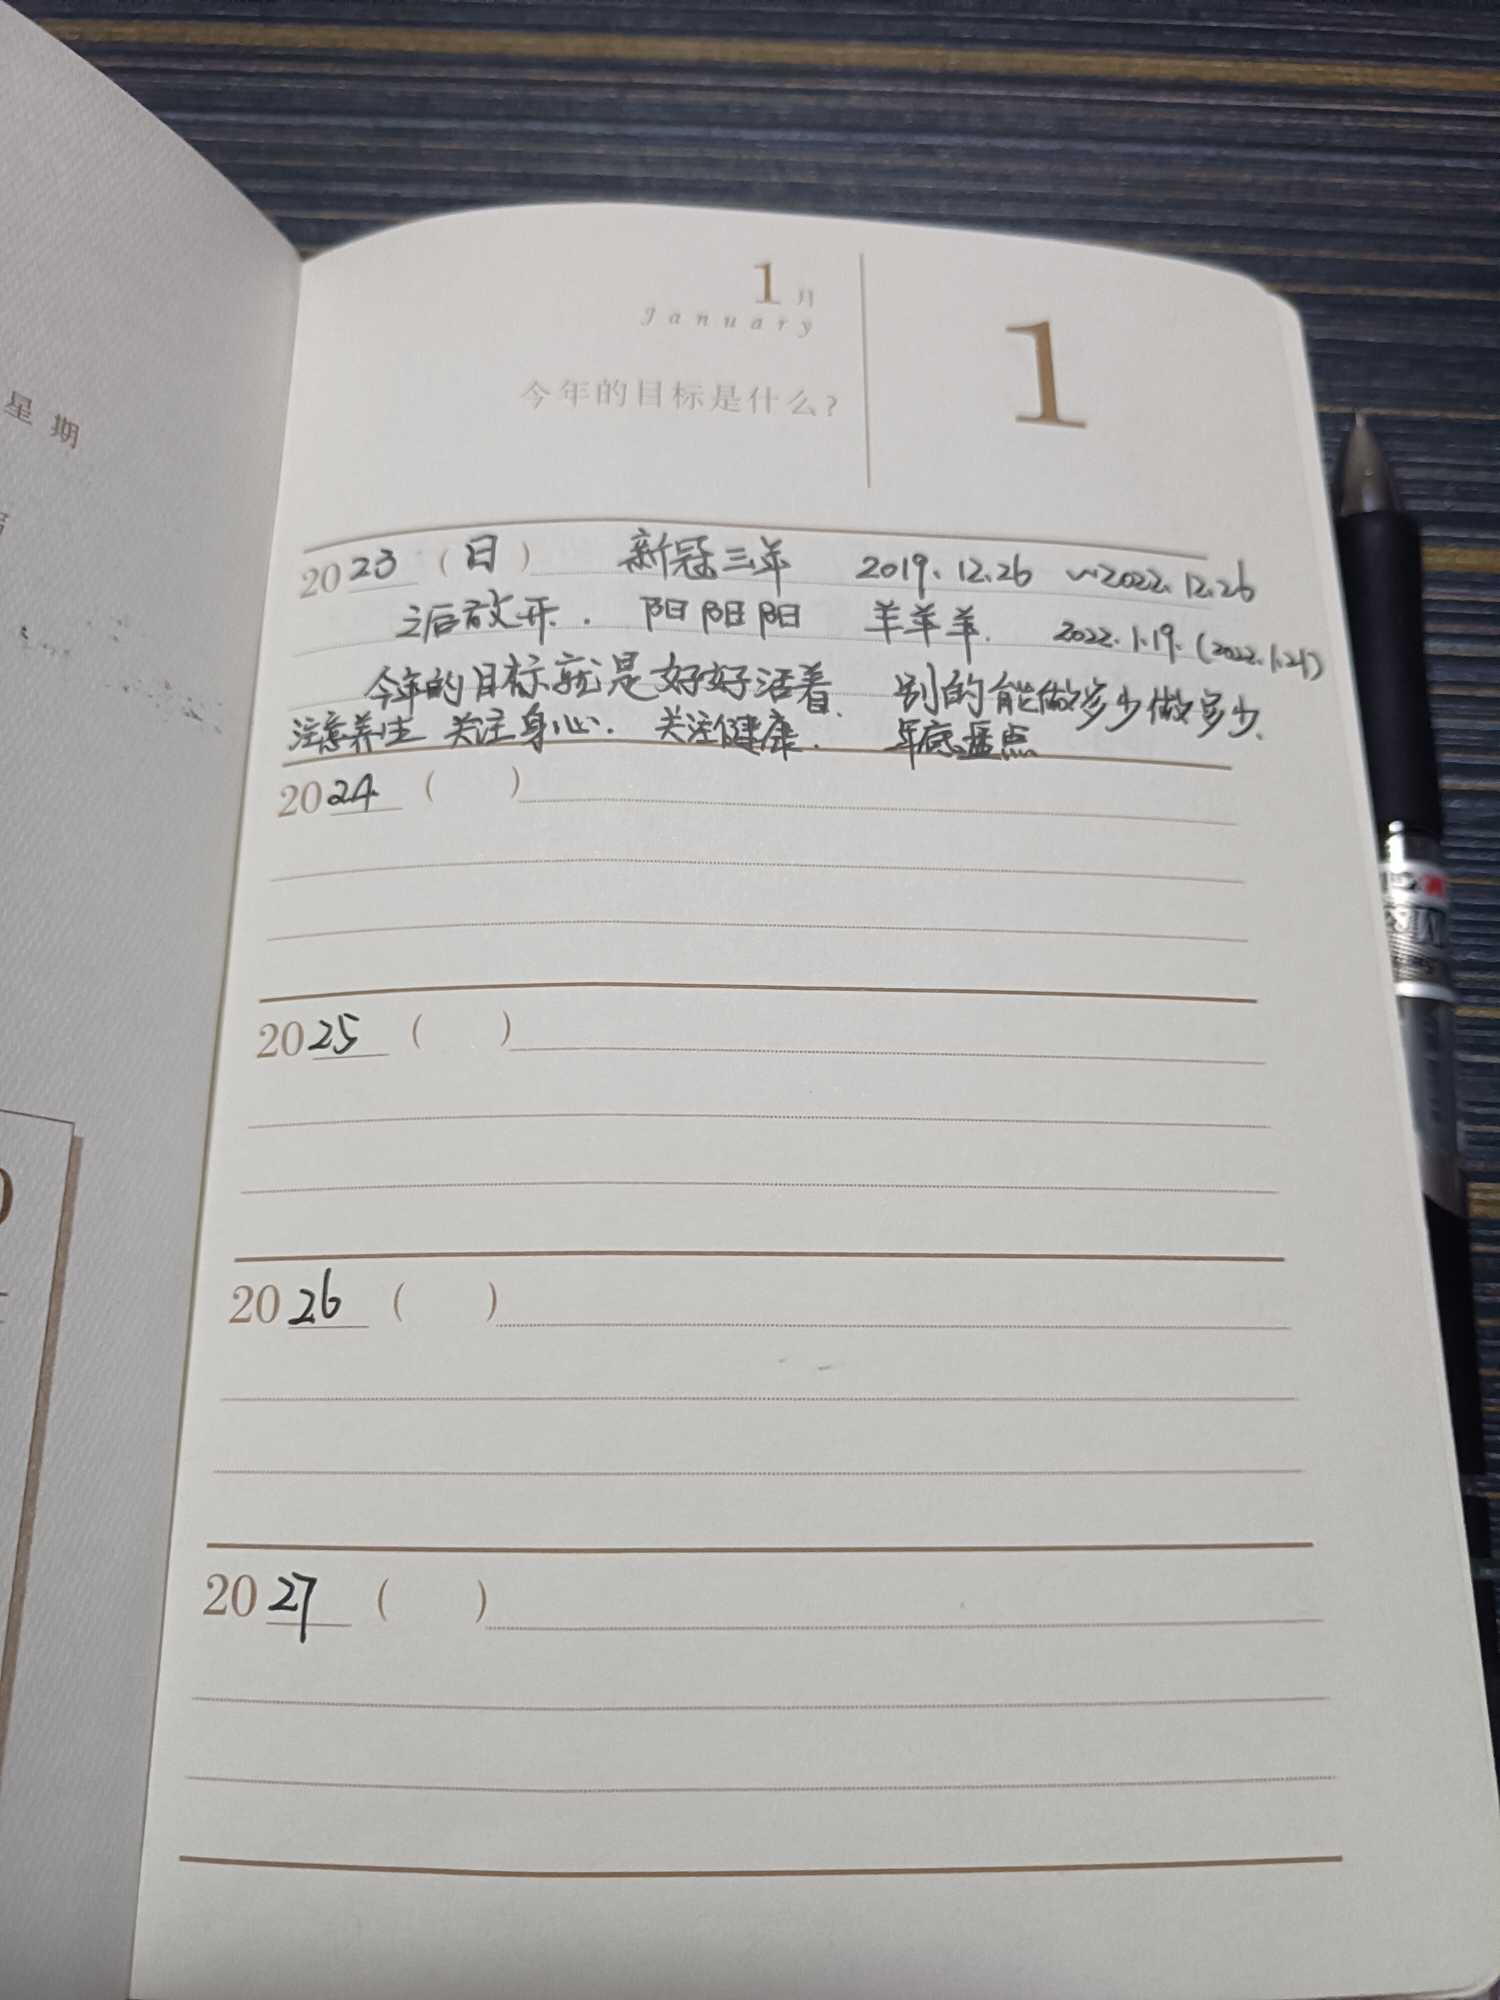 星期
1月
January
今年的目标是什么?
1
2023 (日) 新冠三年 2019.12.26 ~2022.12.26
之后放开. 阳阳阳 羊羊羊. 2022.1.19.(2022.1.21)
今年的目标就是好好活着. 别的能做多少做多少.
注意养生 关注身心. 关注健康. 年底盘点
2024 ( )
2025 ( )
2026 ( )
2027 ( )